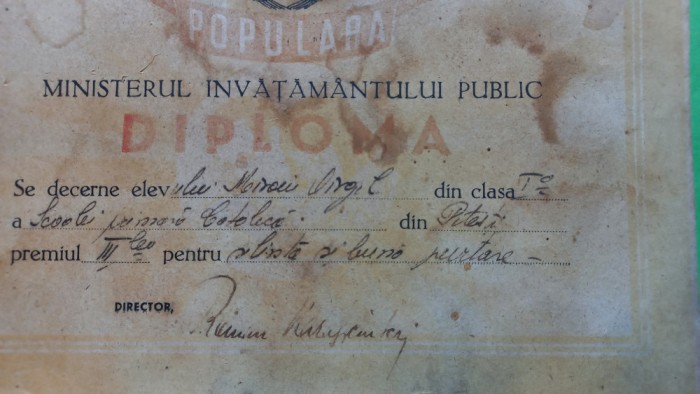 POPULARA
MINISTERUL INVĂŢĂMÂNTULUI PUBLIC
DIPLOMA
Se decerne elevului Mircea Virgil din clasa I-a
a Scoalei primară Catolică din Pitesti
premiul III lea pentru silinta si buna purtare
DIRECTOR,